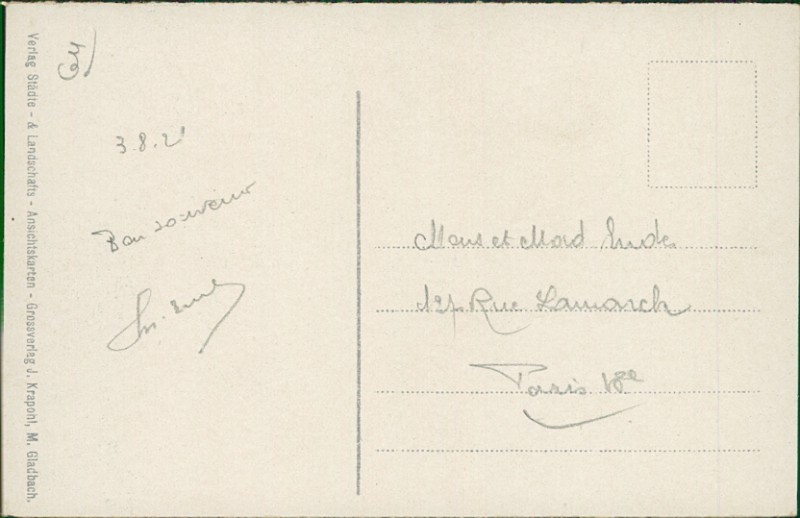 Verlag Städte - & Landschafts - Ansichtskarten - Grossverlag J. Krapohl, M. Gladbach.
64
3.8.21
Bon souvenir
Mons et Mad
Rue Lamarck
Paris 18e